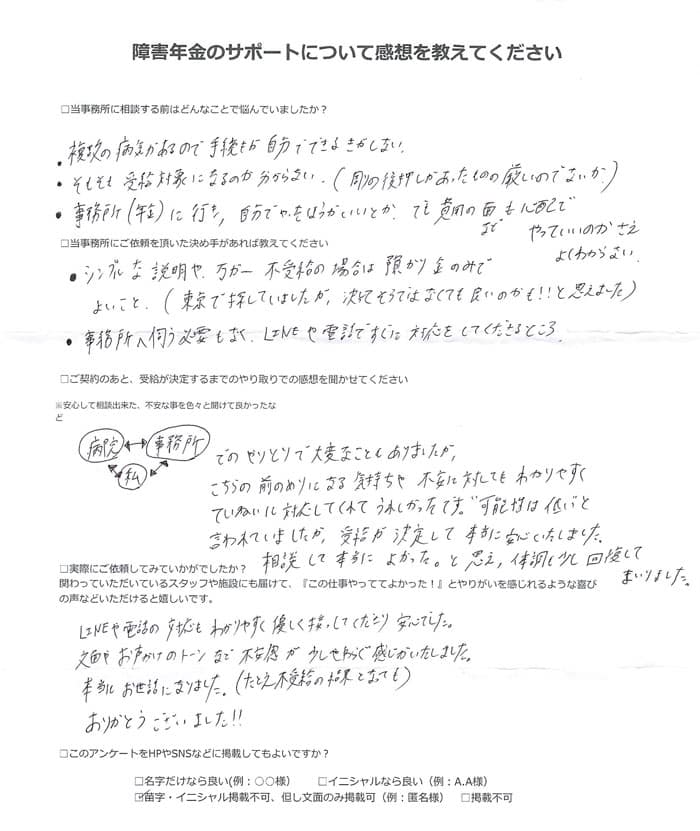 障害年金のサポートについて感想を教えてください
□当事務所に相談する前はどんなことで悩んでいましたか？
・複数の病気があるので手続きが自分でできるきがしない.
・そもそも受給対象になるのか分からない.（周りの後押しがあったものの厳しいのでないか）
・事務所(年金)に行き, 自分でやったほうがいいとか. でも費用の面も心配で
など. やっていいのかさえ
よくわからない.
□当事務所にご依頼を頂いた決め手があれば教えてください
・シンプルな説明や. 万が一不受給の場合は預かり金のみで
よいこと.（東京で探していましたが, 決してそうではなくても良いのかも!!と思えました）
・事務所へ伺う必要もなく. LINEや電話ですぐに対応をしてくださるところ.
□ご契約のあと、受給が決定するまでのやり取りでの感想を聞かせてください
※安心して相談出来た、不安な事を色々と聞けて良かったな
ど
病院 ↔ 事務所
私
でのやりとりで大変なこともありましたが,
こちらの前のめりになる気持ちや不安に対してもわかりやすく
ていねいに対応してくれてうれしかったです。可能性は低いと
言われていましたが, 受給が決定して本当に安心いたしました.
相談して本当によかった。と思え, 体調も少し回復して
まいりました.
□実際にご依頼してみていかがでしたか？
関わっていただいているスタッフや施設にも届けて、『この仕事やっててよかった！』とやりがいを感じれるような喜び
の声などいただけると嬉しいです。
LINEや電話の対応もわかりやすく優しく接してくださり安心でした.
文面やお声かけのトーンなど不安感が少しやわらぐ感じがいたしました.
本当にお世話になりました.（たとえ不受給の結果となっても）
ありがとうございました!!
□このアンケートをHPやSNSなどに掲載してもよいですか？
□名字だけなら良い(例：○○様） □イニシャルなら良い（例：A.A様）
☑苗字・イニシャル掲載不可、但し文面のみ掲載可（例：匿名様） □掲載不可